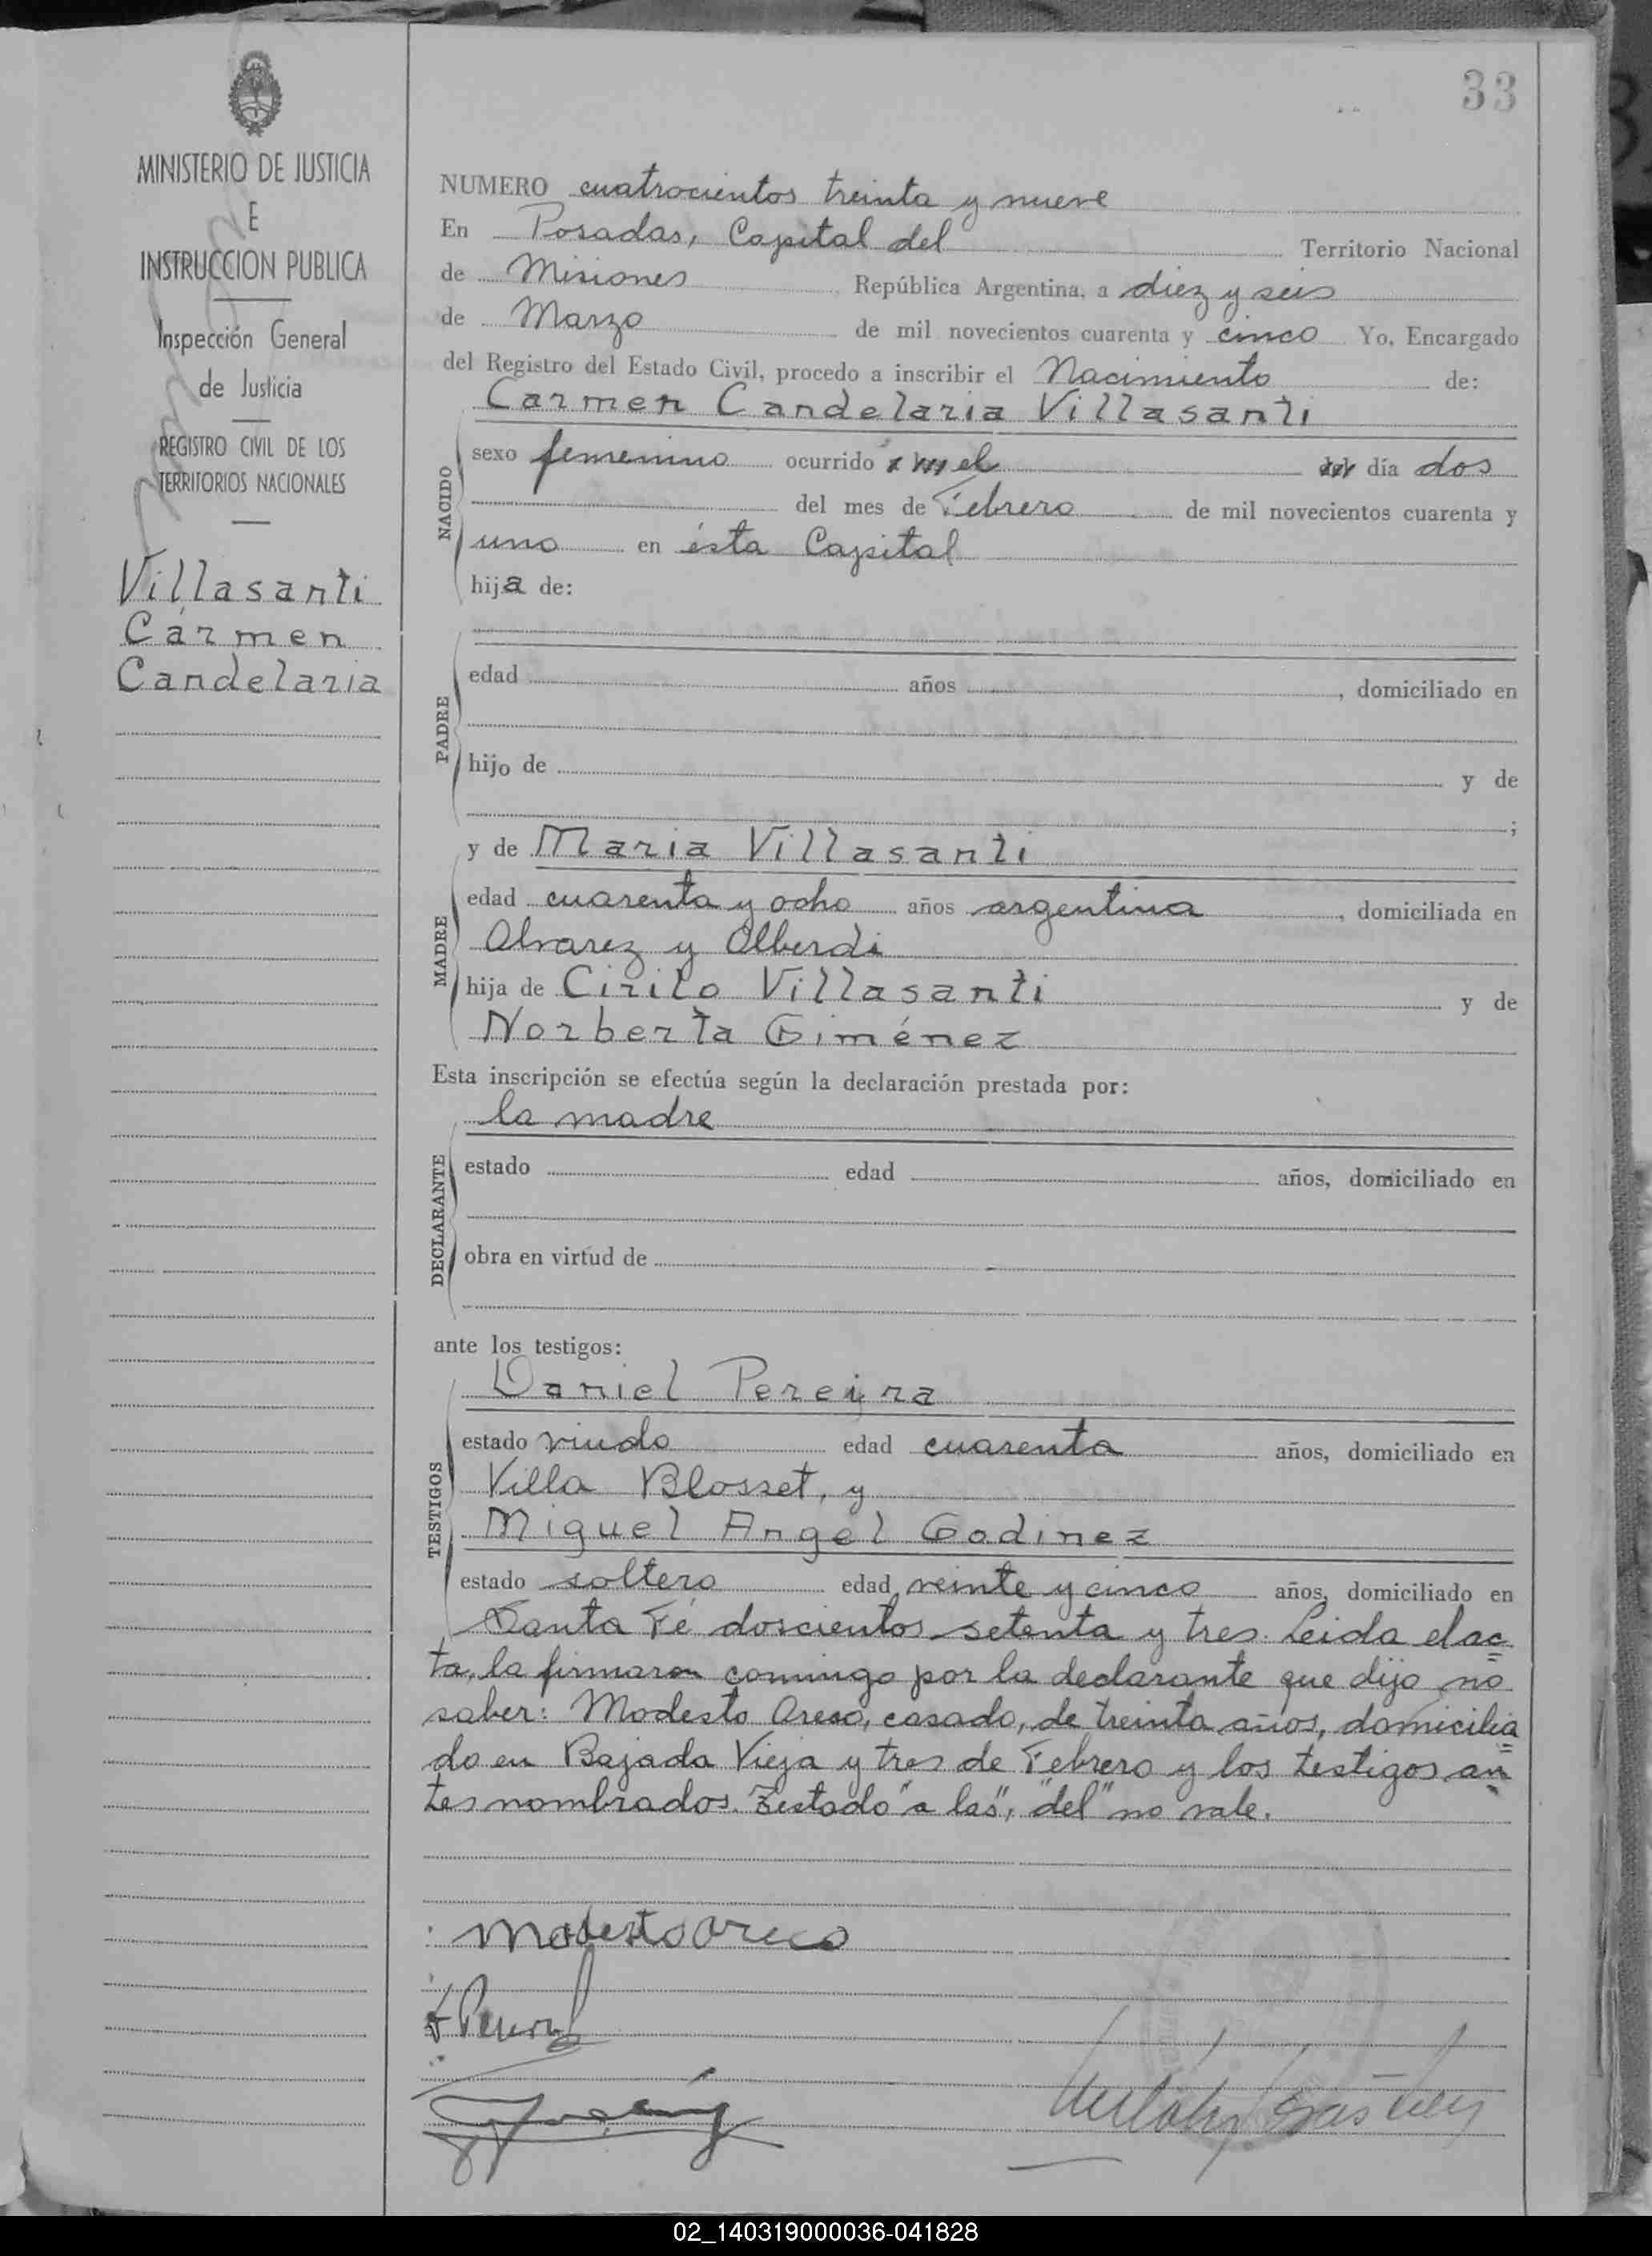 33
MINISTERIO DE JUSTICIA
E
INSTRUCCION PUBLICA
Inspección General
de Justicia
REGISTRO CIVIL DE LOS
TERRITORIOS NACIONALES
Villasanti
Cármen
Candelaria
NUMERO cuatrocientos treinta y nueve
En Posadas, Capital del Territorio Nacional
de Misiones República Argentina, a diez y seis
de Marzo de mil novecientos cuarenta y cinco Yo, Encargado
del Registro del Estado Civil, procedo a inscribir el Nacimiento de:
Carmen Candelaria Villasanti
NACIDO
sexo femenino ocurrido el día dos
del mes de Febrero de mil novecientos cuarenta y
uno en ésta Capital
hija de:
PADRE
edad años , domiciliado en
hijo de y de
;
y de Maria Villasanti
MADRE
edad cuarenta y ocho años argentina , domiciliada en
Alvarez y Alberdi
hija de Cirilo Villasanti y de
Norberta Giménez
Esta inscripción se efectúa según la declaración prestada por:
la madre
DECLARANTE
estado edad años, domiciliado en
obra en virtud de
ante los testigos:
Daniel Pereyra
TESTIGOS
estado viudo edad cuarenta años, domiciliado en
Villa Blosset, y
Miguel Angel Godinez
estado soltero edad veinte y cinco años, domiciliado en
Santa Fé doscientos setenta y tres. Leida el ac=
ta, la firmaron comingo por la declarante que dijo no
saber: Modesto Areco, casado, de treinta años, domicilia=
do en Bajada Vieja y tres de Febrero y los testigos an=
tes nombrados. Testado "a las", "del" no vale.
Modesto Areco
02_140319000036-041828